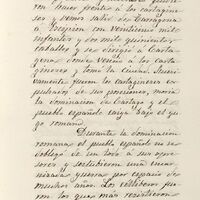 ron hacer frente á los cartagine
ses y vemos salir de Tarragona
á Escipion con veinticinco mil
infantes y dos mil quinientos
caballos y se dirigió á Carta
gena donde venció á los carta
gineses y tomó la ciudad. Sucesi
vamente fueron los cartagineses ex
pulsados de sus posesiones, moria
la dominacion de Cartago y el
pueblo español caiga bajo el yu
go romano.
Durante la dominacion
romana el pueblo español no se
doblegó de un todo á sus opre
sores y sostuvieron una encar
nizada guerra por espacio de
muchos años. Los celtíberos fue
ron los que más resistieron